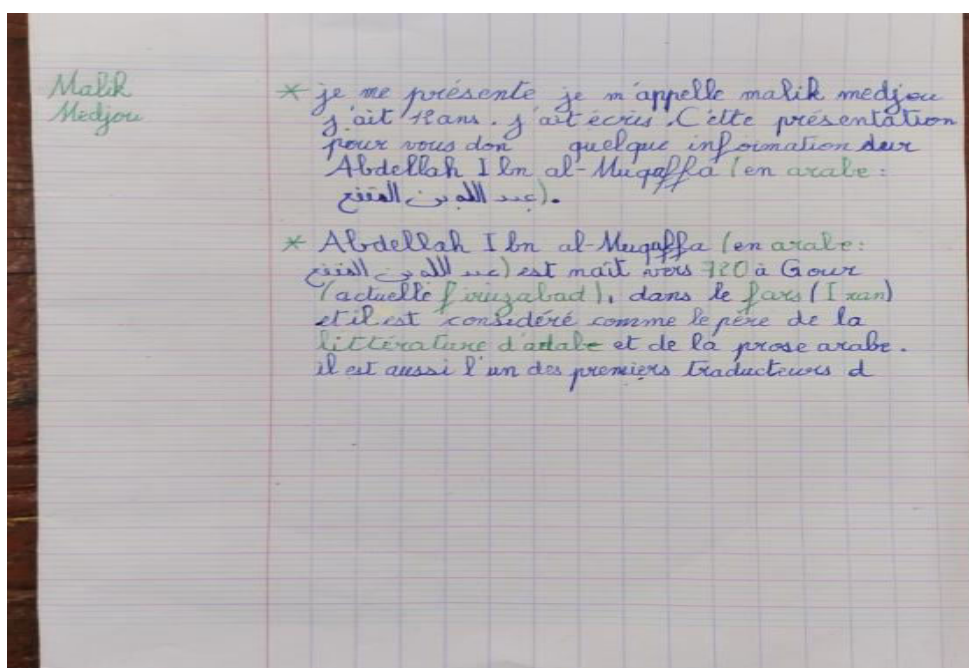 Malik
Medjou
* je me présente je m'appelle malik medjou
j'ait 12 ans. j'ait écris. Cette présentation
pour vous don quelque information sur
Abdellah Ibn al-Muqaffa (en arabe :
عبد الله بن المقفع).
* Abdellah Ibn al-Muqaffa (en arabe :
عبد الله بن المقفع) est naît vers 720 à Gour
(actuelle firuzabad), dans le fars (Iran)
et il est considéré comme le père de la
littérature d'adabe et de la prose arabe.
il est aussi l'un des premiers traducteurs d